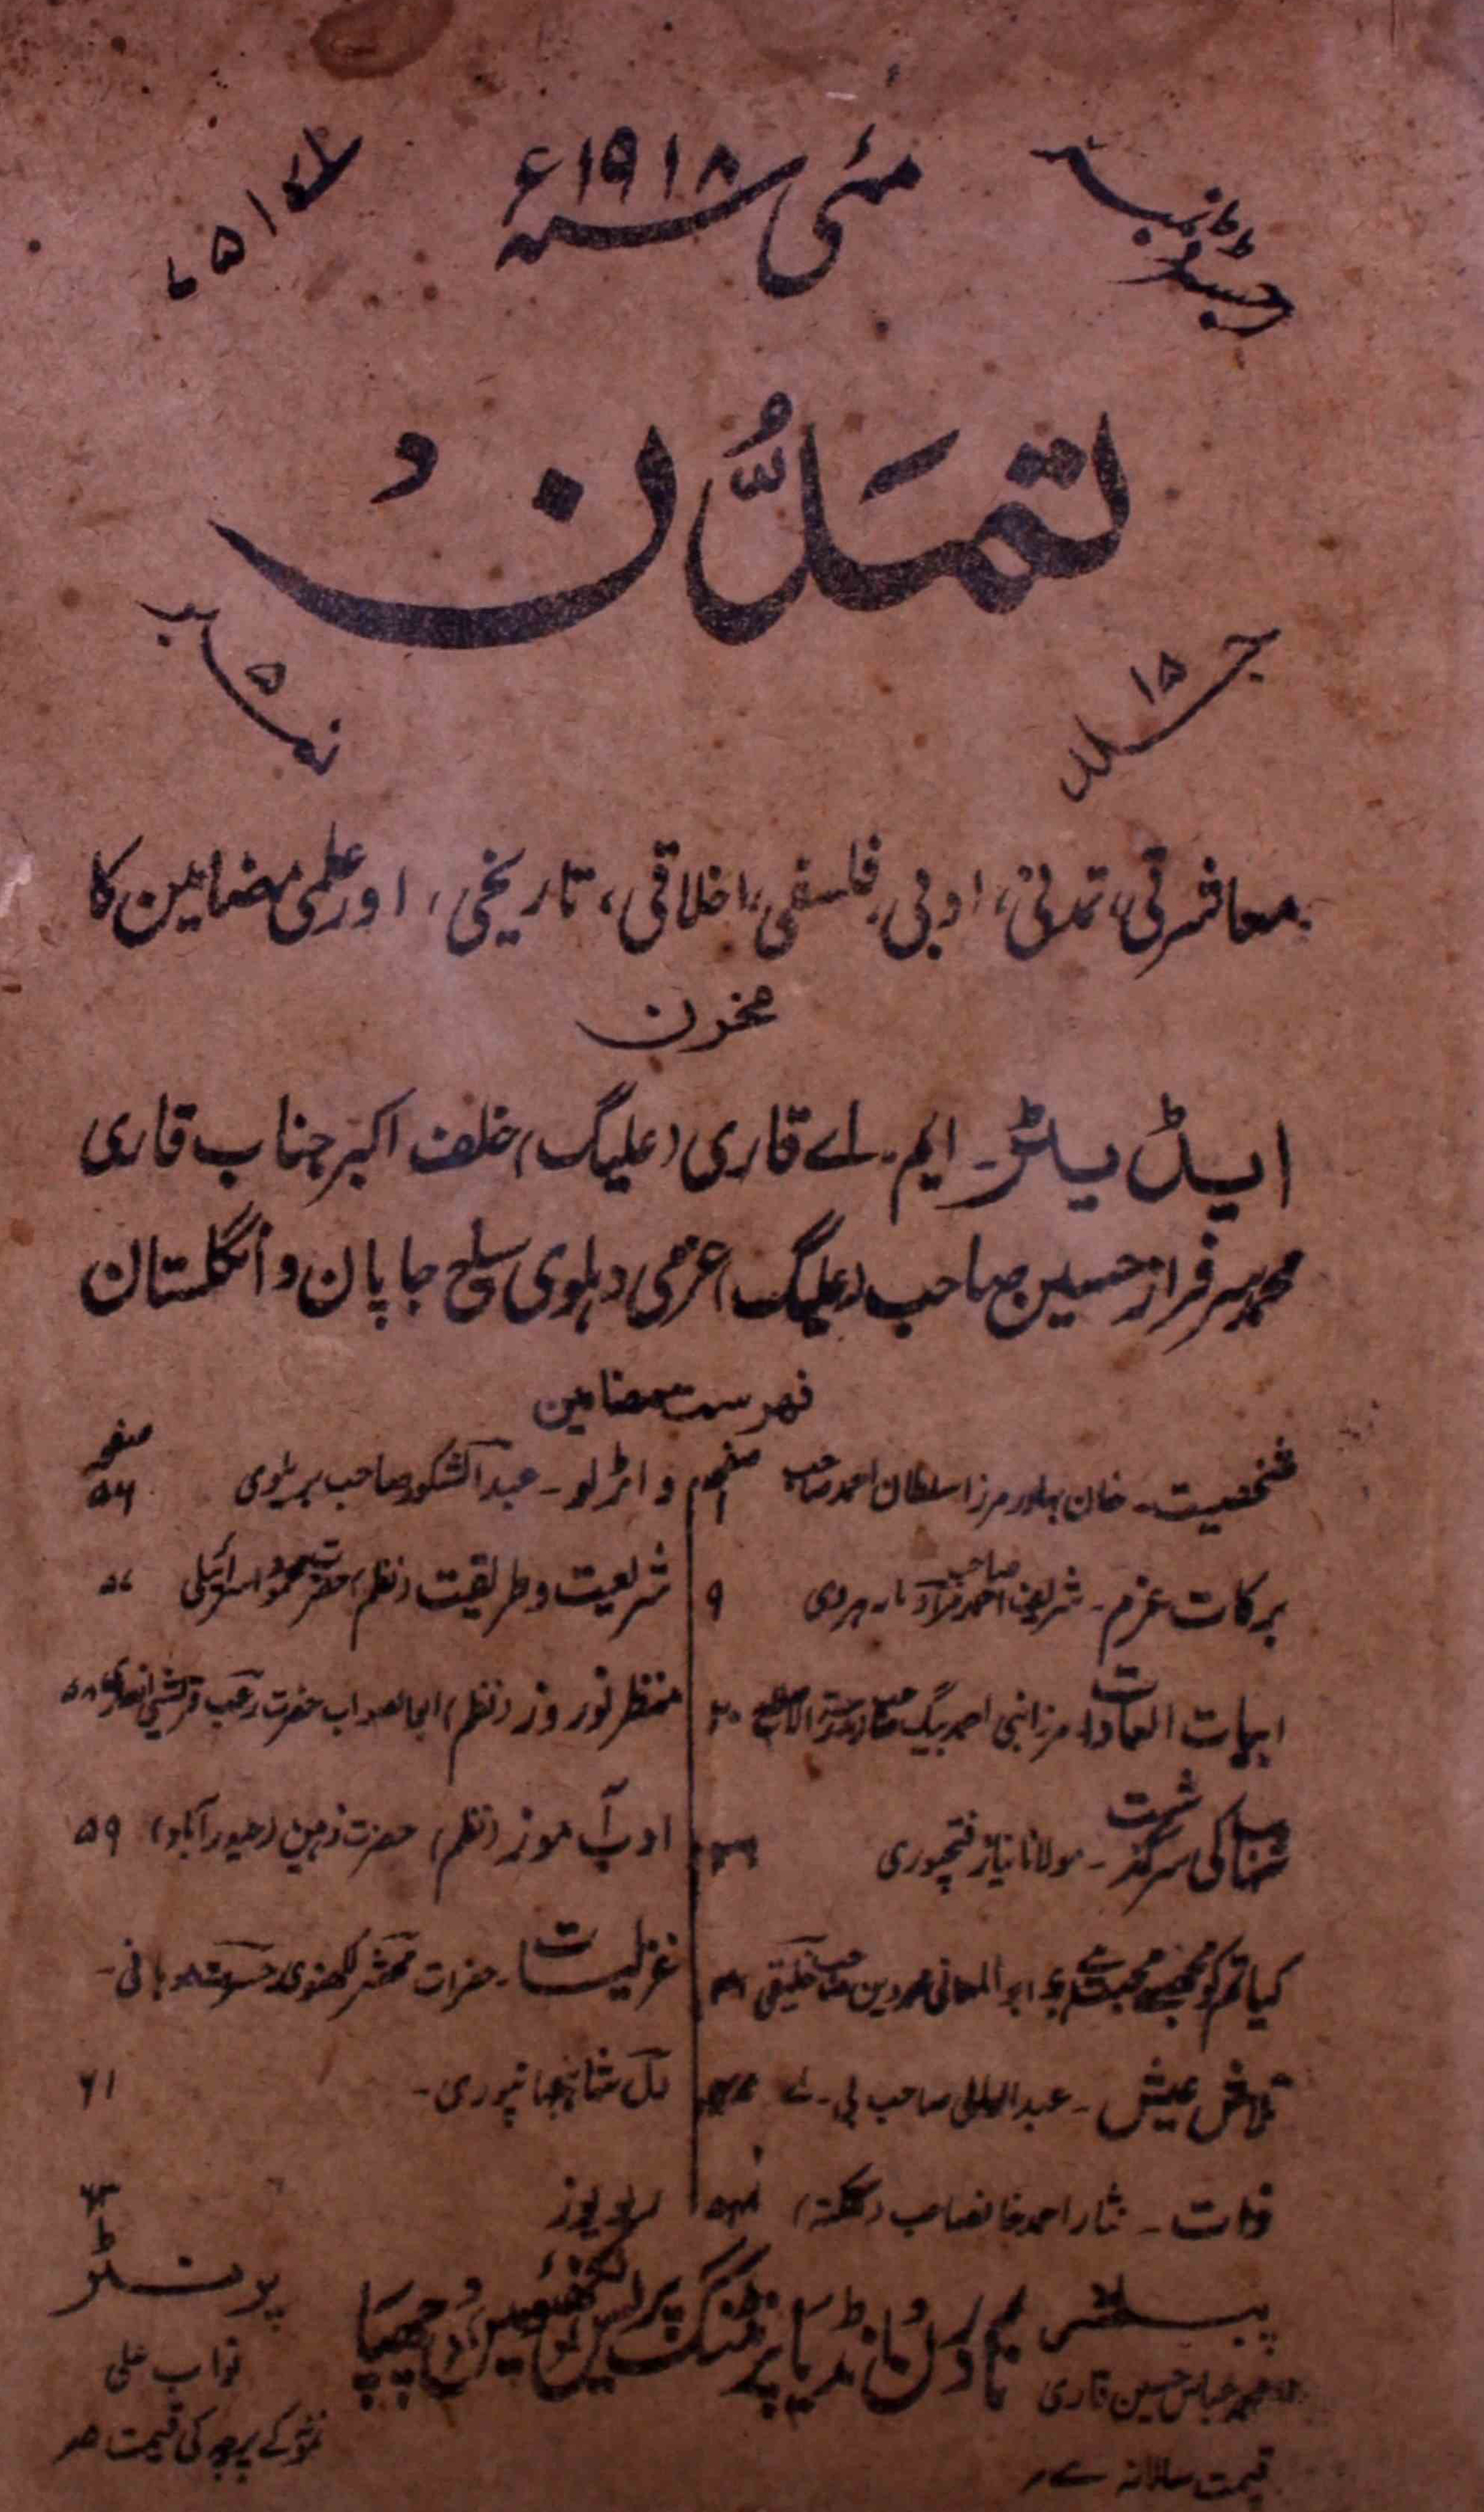 مئی سنہ ۱۹۱۸ء
رجسٹرڈ نمبر
تمدّن
جلد ۱۵
نمبر ۵
معاشرتی، تمدنی، ادبی، فلسفی، اخلاقی، تاریخی، اور علمی مضامین کا
مخزن
ایڈیٹر۔ ایم۔ اے قاری (علیگ) خلف اکبر جناب قاری
محمد سرفراز حسین صاحب (علیگ) عزمی دہلوی سیاح جاپان و انگلستان
فہرست مضامین
صفحہ
صفحہ
شخصیت۔ خان بہادر مرزا سلطان احمد صاحب ۱
برکات عزم۔ شریف احمد صاحب مارہروی ۹
امہات العادات۔ مرزا نبی احمد بیگ صاحب ۲۰
شہاب کی سرگذشت۔ مولانا نیاز فتحپوری
کیا تم کو مجھ سے محبت ہے۔ ابو المعانی محمد دین صاحب خلیقی
تلاش عیش۔ عبدالوالی صاحب بی۔ اے
وفات۔ نثار احمد خانصاحب (کلکتہ)
واٹرلو۔ عبدالشکور صاحب بریلوی ۵۶
شریعت و طریقت (نظم) حضرت محمود اسرائیلی ۵۷
منظر نوروز (نظم) ابو الصواب حضرت رغب قریشی انصاری ۵۸
ادب آموز (نظم) حضرت ذہین (حیدرآباد) ۵۹
غزلیات۔ حضرات محشر لکھنوی، حسرت موہانی۔
دل شاہجہانپوری۔ ۶۱
ریویوز ۶۳
پبلشر
محمد عباس حسین قاری
ماڈرن انڈیا پرنٹنگ پریس لکھنؤ میں چھپا
پرنٹر
نواب علی
قیمت سالانہ
نمونہ کے پرچہ کی قیمت